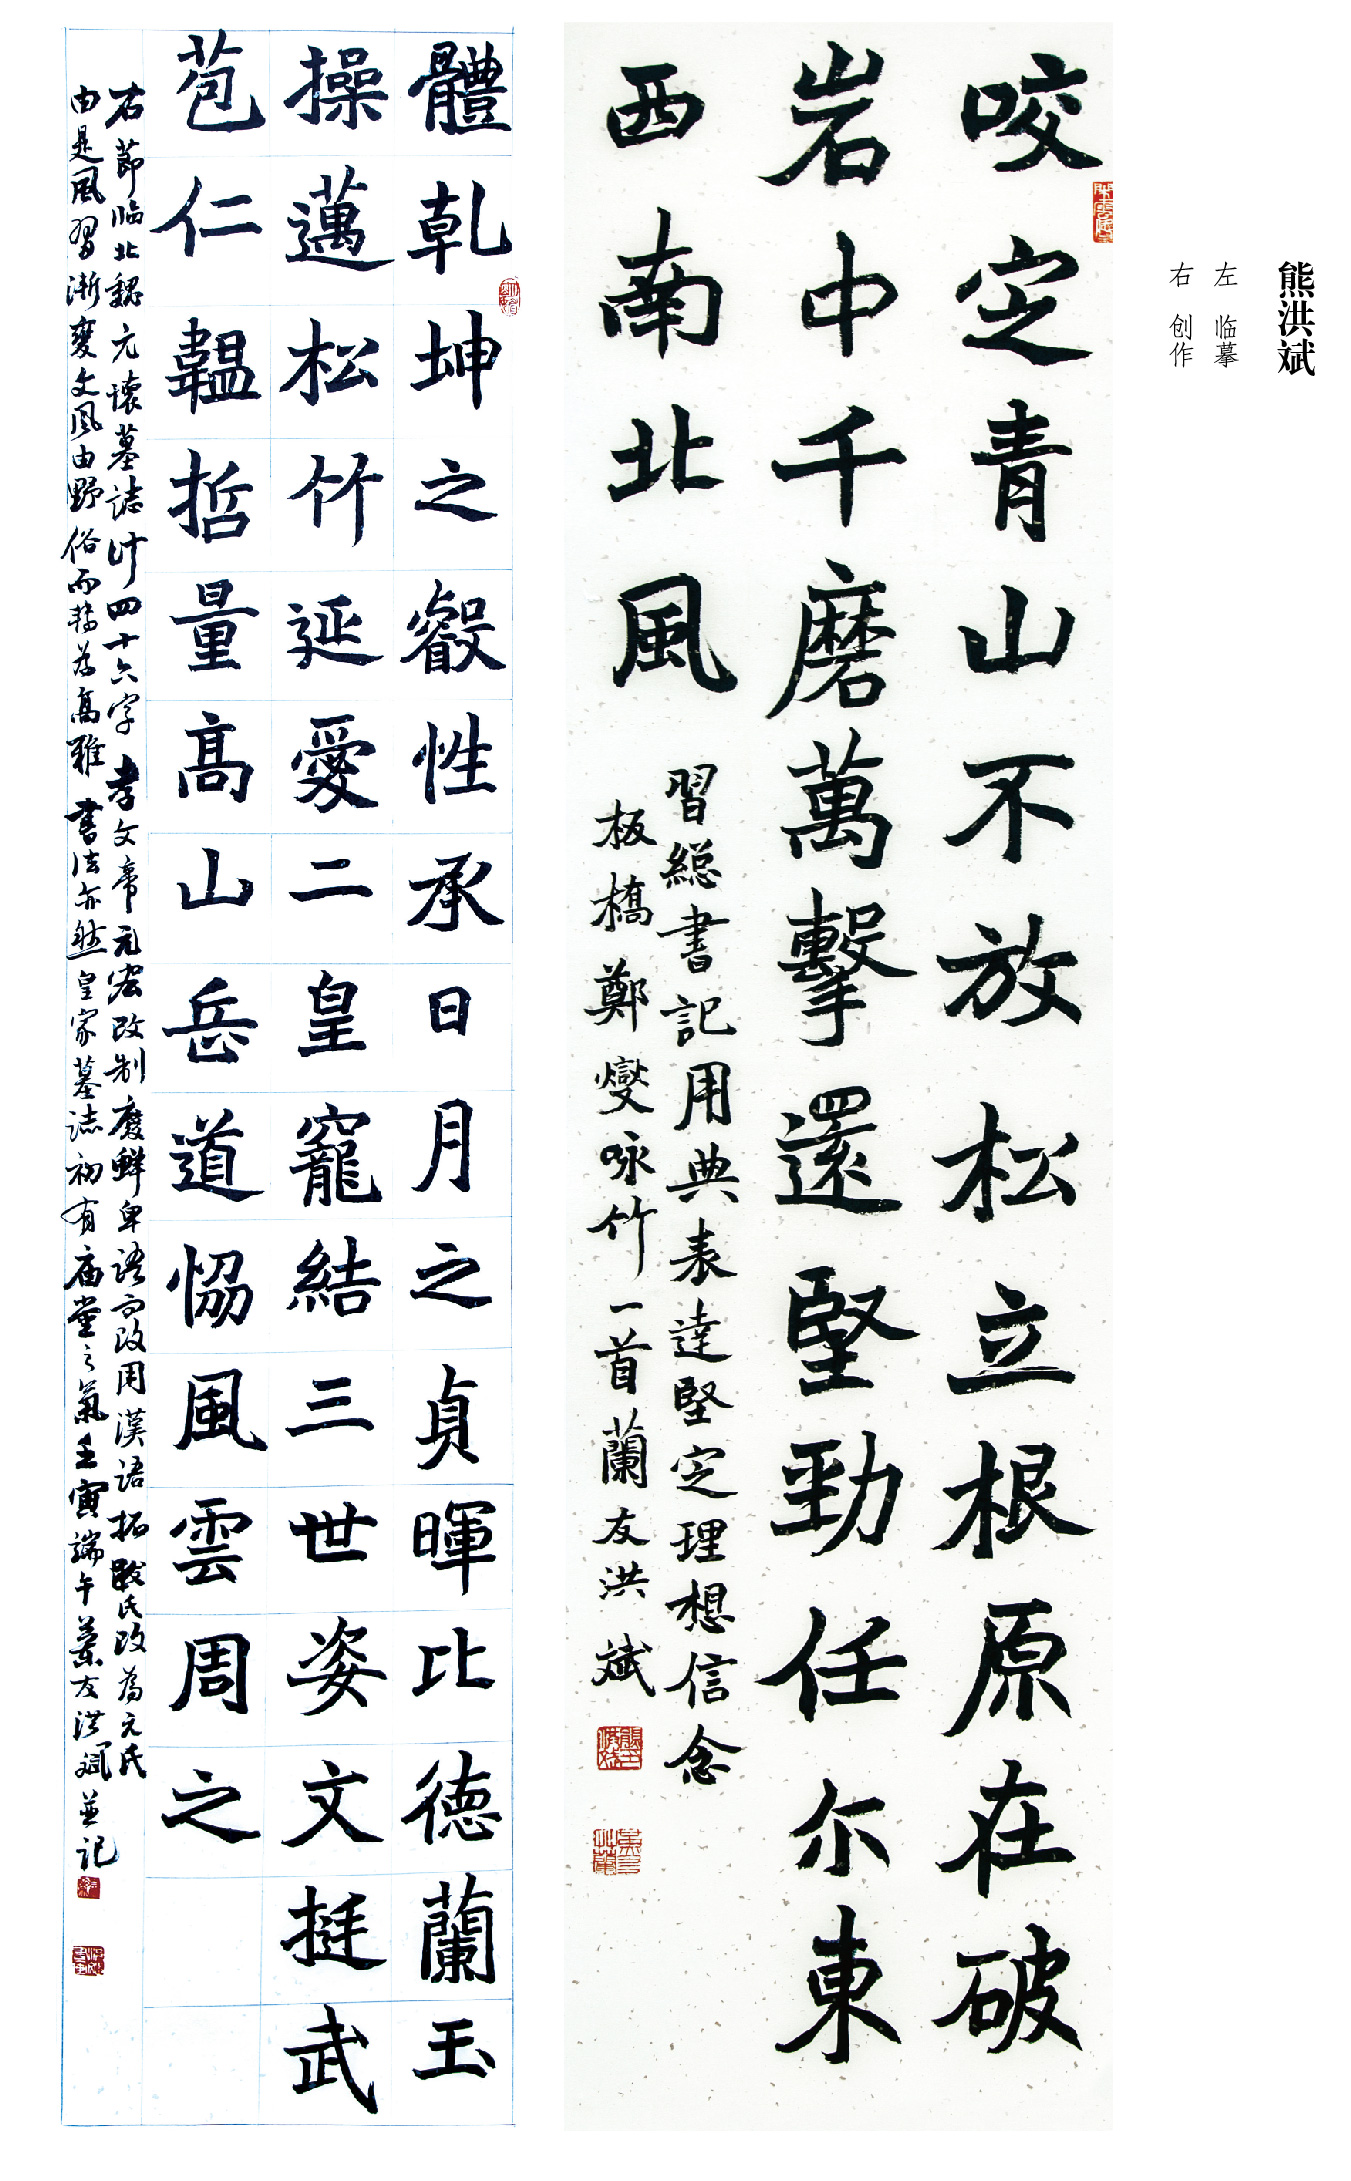 熊洪斌
左 临摹
右 创作
咬定青山不放松立根原在破
岩中千磨萬擊還堅勁任尔東
西南北風
習總書記用典表達堅定理想信念
板橋鄭燮咏竹一首蘭友洪斌
體乾坤之叡性承日月之貞暉比德蘭玉
操邁松竹延愛二皇寵結三世姿文挺武
苞仁韞哲量高山岳道恊風雲周之
右節临北魏元懷墓誌计四十六字孝文帝元宏改制废鲜卑語而改用漢语拓跋氏改為元氏
由是風習漸變文風由野俗而转为高雅書法亦然皇家墓誌初有庙堂之氣壬寅端午蘭友洪斌並记